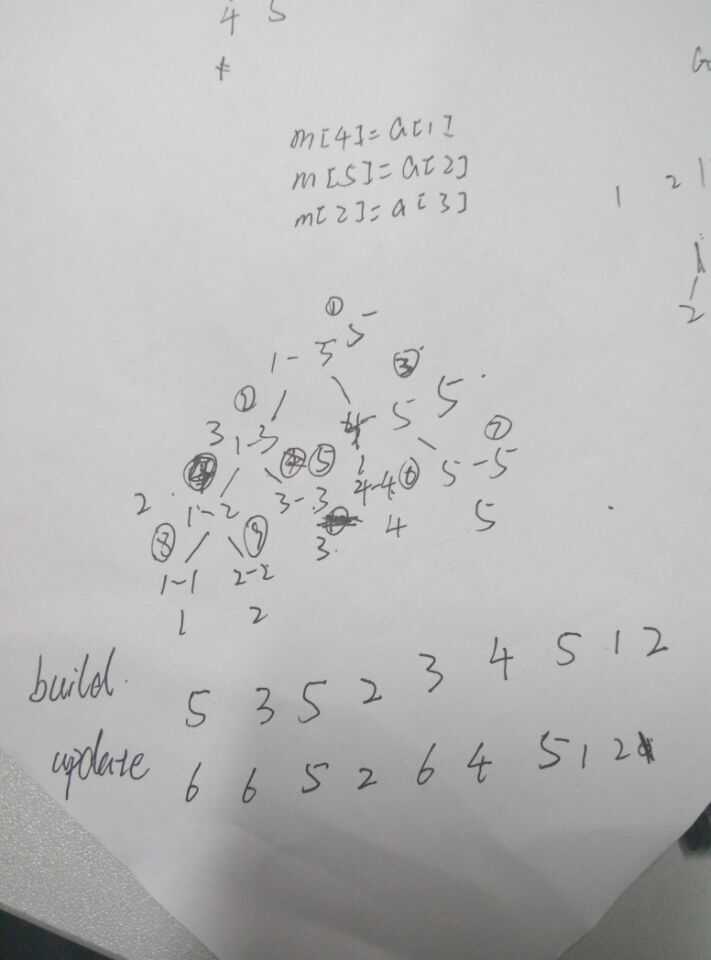 4 5
m[4]=a[1]
m[5]=a[2]
m[2]=a[3]
1 2 1
2
① 5
1-5
② ③
3 1-3 4-5 5
⑤ ⑦
2 1-2 3-3 4-4 ⑥ 5-5
3 4 5
⑧ ⑨
1-1 2-2
1 2
build. 5 3 5 2 3 4 5 1 2
update 6 6 5 2 6 4 5 1 2